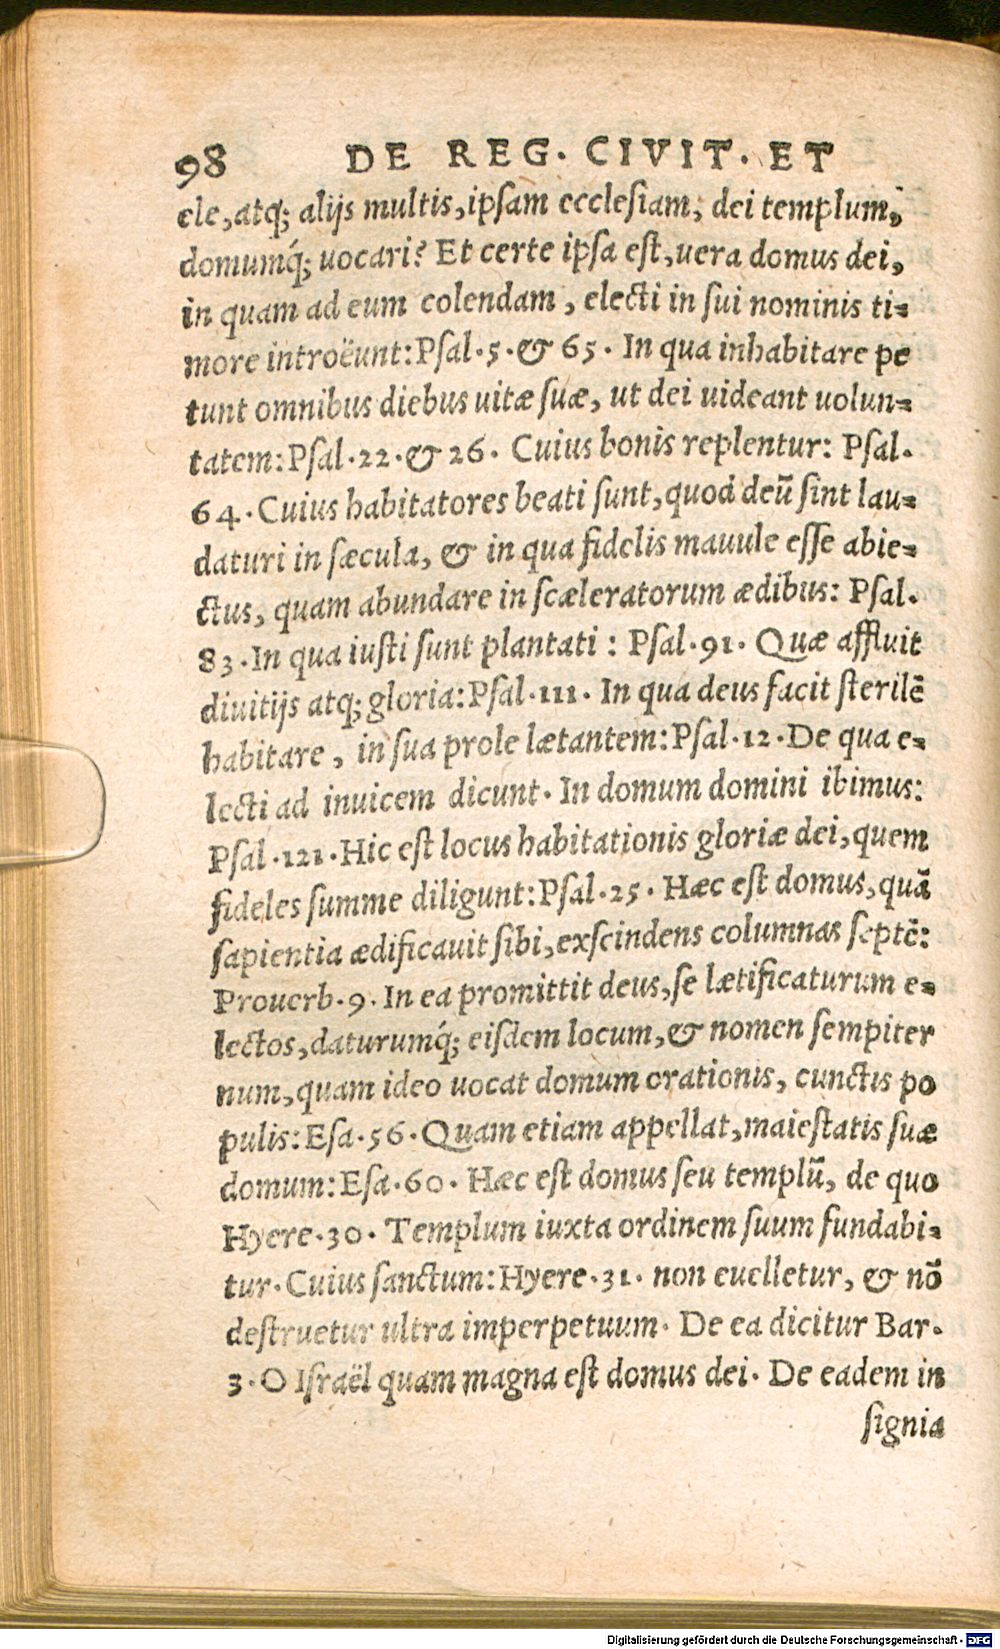 98 DE REG. CIVIT. ET
cle, atq; alijs multis, ipsam ecclesiam, dei templum,
domumq́; uocari? Et certe ipsa est, uera domus dei,
in quam ad eum colendam, electi in sui nominis ti-
more introëunt: Psal. 5. & 65. In qua inhabitare pe
tunt omnibus diebus uitæ suæ, ut dei uideant uolun-
tatem: Psal. 22. & 26. Cuius bonis replentur: Psal.
64. Cuius habitatores beati sunt, quod deū sint lau-
daturi in sæcula, & in qua fidelis mauule esse abie-
ctus, quam abundare in scæleratorum ædibus: Psal.
83. In qua iusti sunt plantati: Psal. 91. Quæ affluit
diuitijs atq; gloria: Psal. 111. In qua deus facit sterilē
habitare, in sua prole lætantem: Psal. 12. De qua e-
lecti ad inuicem dicunt. In domum domini ibimus:
Psal. 121. Hic est locus habitationis gloriæ dei, quem
fideles summe diligunt: Psal. 25. Hæc est domus, quā
sapientia ædificauit sibi, exscindens columnas septē:
Prouerb. 9. In ea promittit deus, se lætificaturum e-
lectos, daturumq́; eisdem locum, & nomen sempiter
num, quam ideo uocat domum orationis, cunctis po
pulis: Esa. 56. Quam etiam appellat, maiestatis suæ
domum: Esa. 60. Hæc est domus seu templū, de quo
Hyere. 30. Templum iuxta ordinem suum fundabi-
tur. Cuius sanctum: Hyere. 31. non euelletur, & nō
destruetur ultra imperpetuum. De ea dicitur Bar.
3. O Israël quam magna est domus dei. De eadem in
signia
Digitalisierung gefördert durch die Deutsche Forschungsgemeinschaft - DFG